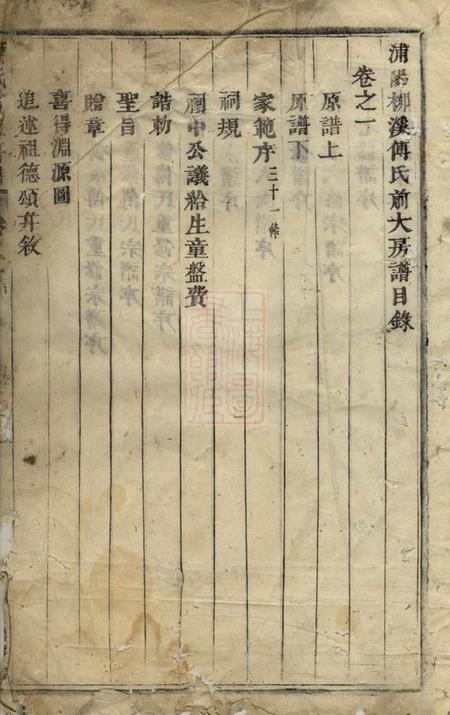 浦陽柳溪傅氏前大房譜目錄
卷之一
原譜上
原譜下
家範序三十一條
祠規
祠中公議給生童盤費
誥勅
聖旨
贈章
喜得淵源圖
追述祖德頌并敘